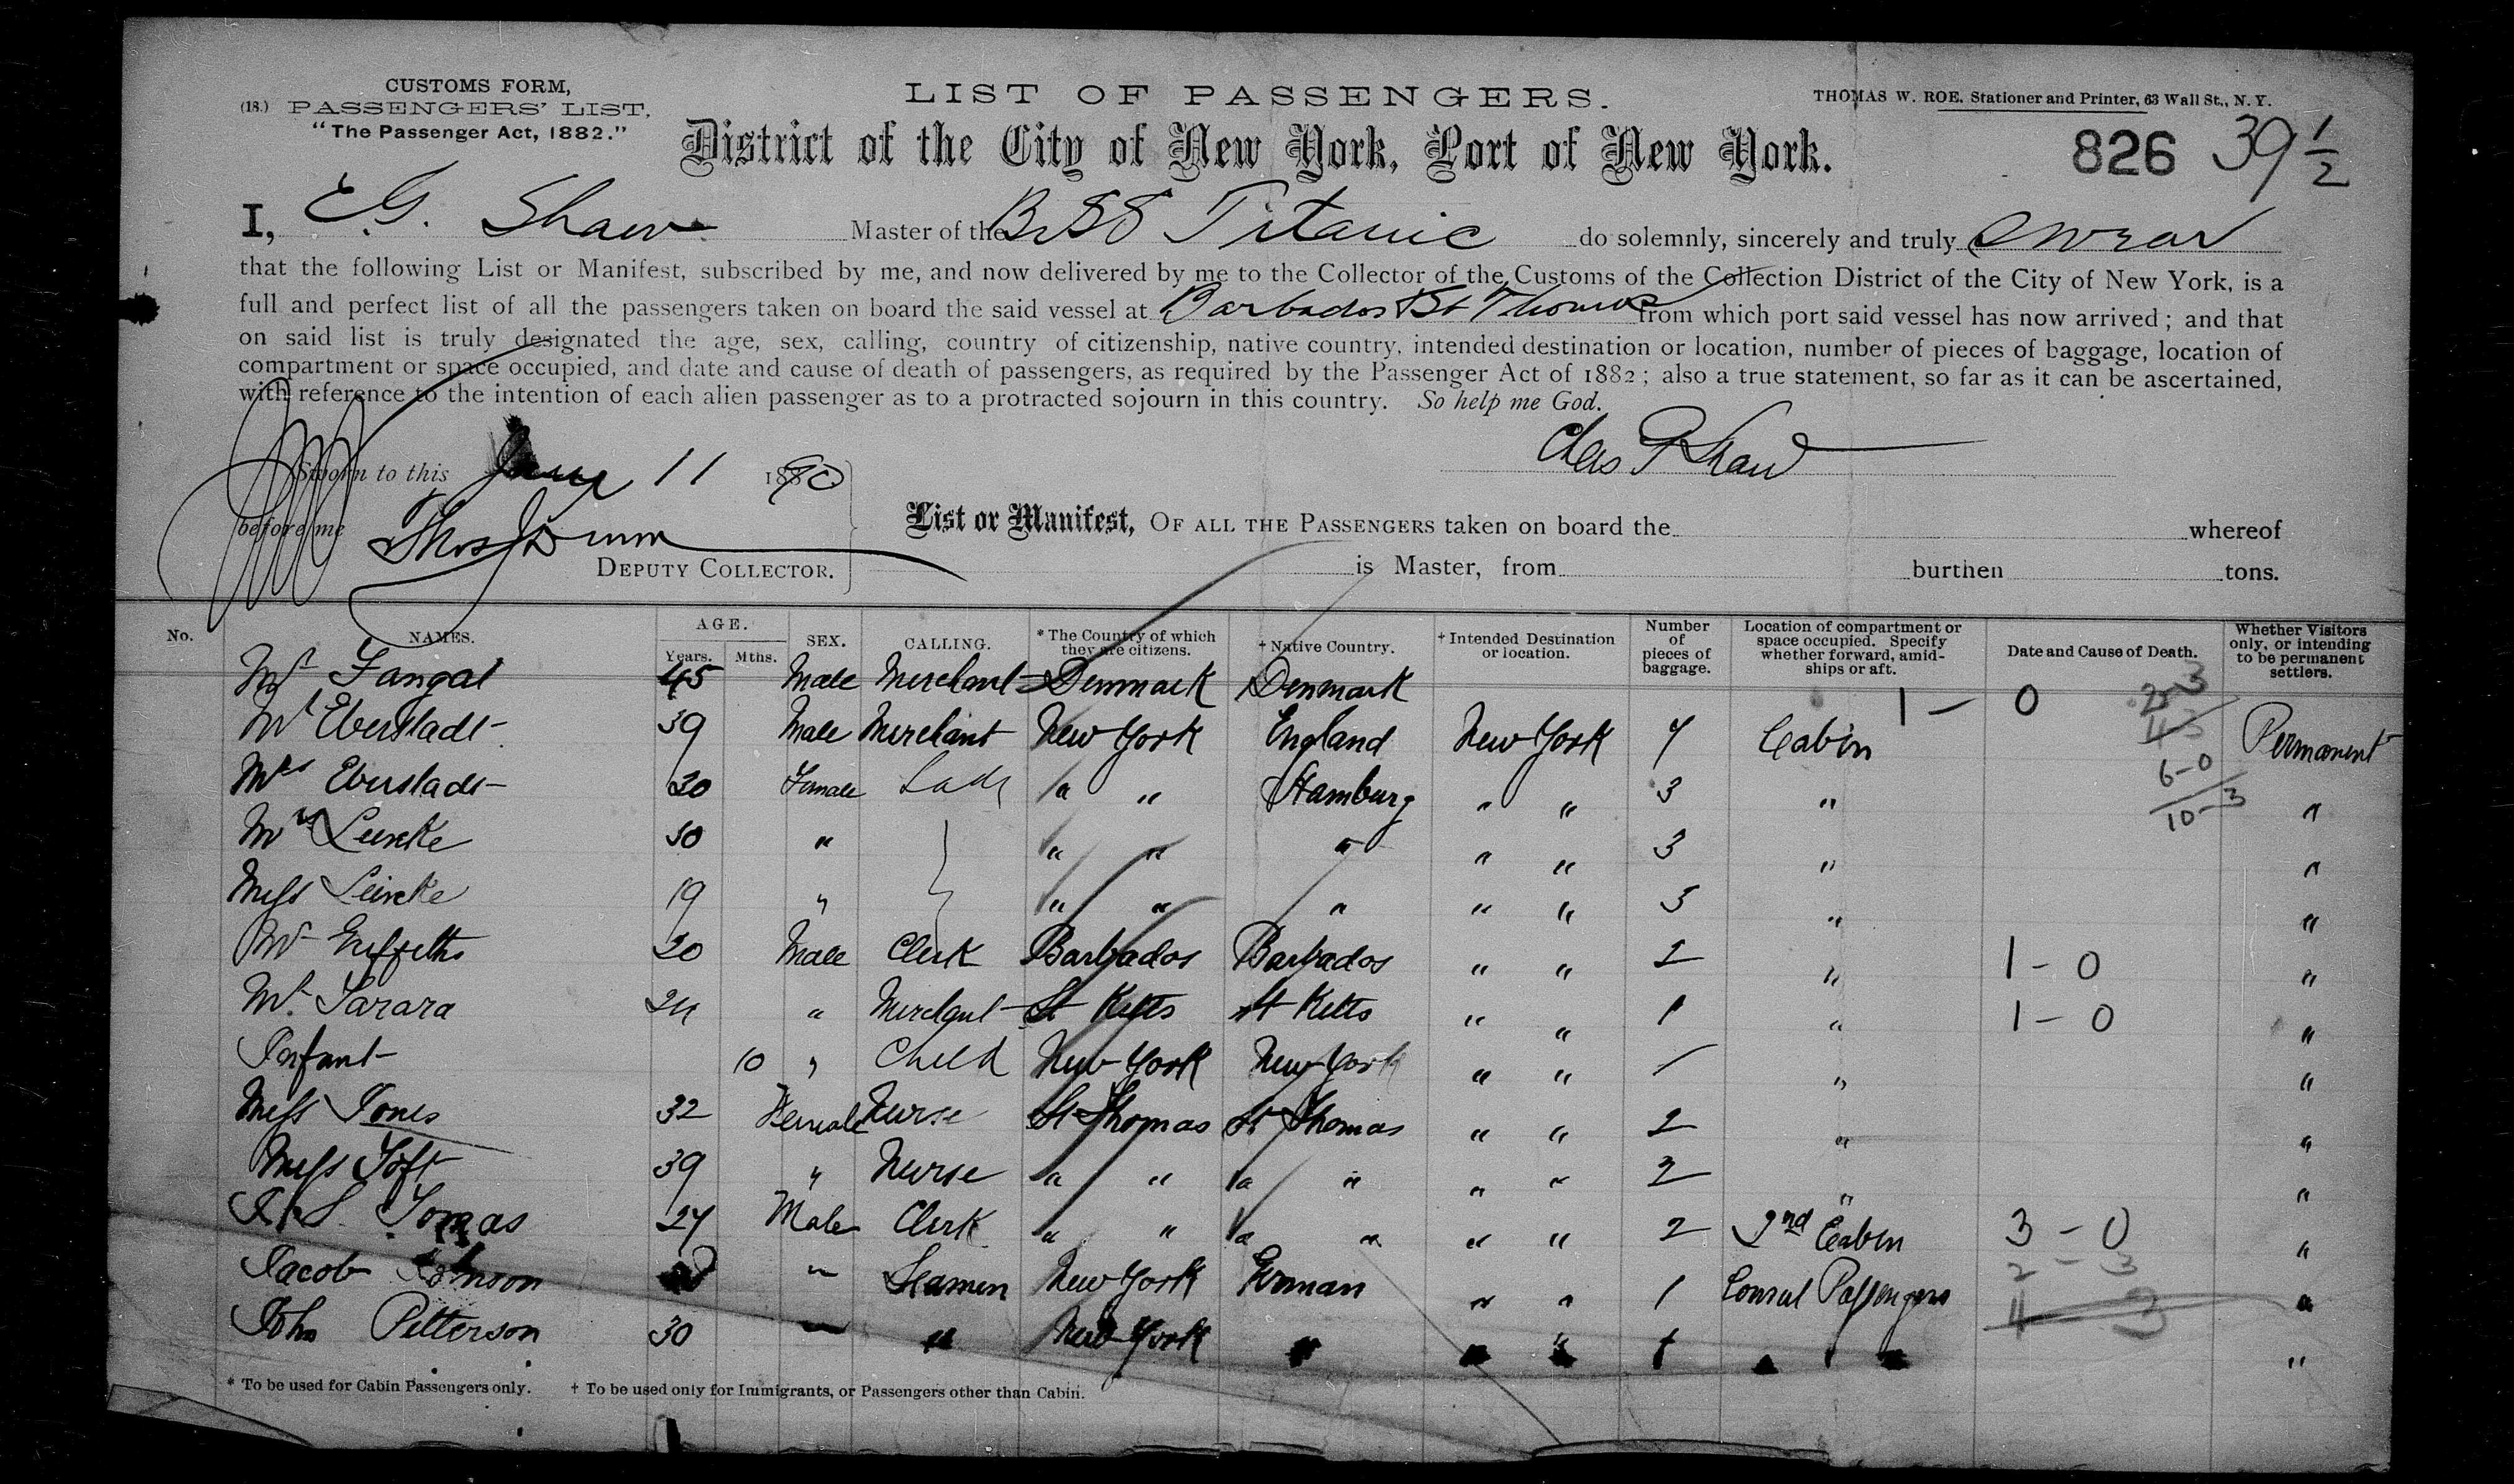 CUSTOMS FORM,
(18.) PASSENGERS' LIST,
"The Passenger Act, 1882."
LIST OF PASSENGERS.
THOMAS W. ROE. Stationer and Printer, 63 Wall St., N. Y.
District of the City of New York, Port of New York.
826 39 1/2
I, E.G. Shaw Master of the Br SS Titanic do solemnly, sincerely and truly swear
that the following List or Manifest, subscribed by me, and now delivered by me to the Collector of the Customs of the Collection District of the City of New York, is a
full and perfect list of all the passengers taken on board the said vessel at Barbados & St Thomas from which port said vessel has now arrived; and that
on said list is truly designated the age, sex, calling, country of citizenship, native country, intended destination or location, number of pieces of baggage, location of
compartment or space occupied, and date and cause of death of passengers, as required by the Passenger Act of 1882; also a true statement, so far as it can be ascertained,
with reference to the intention of each alien passenger as to a protracted sojourn in this country. So help me God.
Chas G Shaw
Sworn to this Jany 11 1890
before me
DEPUTY COLLECTOR.
List or Manifest, OF ALL THE PASSENGERS taken on board the whereof
is Master, from burthen tons.
No. NAMES. AGE. Years. Mths. SEX. CALLING. * The Country of which they are citizens. † Native Country. † Intended Destination or location. Number of pieces of baggage. Location of compartment or space occupied. Specify whether forward, amidships or aft. Date and Cause of Death. Whether Visitors only, or intending to be permanent settlers.
Mr Fangal 45 Male Merchant Denmark Denmark 1 - 0
Mr Eberstadt 39 Male Merchant New York England New York 4 Cabin Permanent
Mrs Eberstadt 30 Female Lady " " Hamburg " " 3 " 6-0 "
Mrs Leincke 50 " " " " " " 3 " 10-3 "
Miss Leincke 19 " " " " " " 3 " "
Mr Griffeths 20 Male Clerk Barbados Barbados " " 2 " 1 - 0 "
Mr. Sarara 24 " Merchant St Kitts St Kitts " " 1 " 1 - 0 "
Infant 10 " Child New York New York " " / " "
Miss Jones 32 Female Nurse St Thomas St Thomas " " 2 " "
Miss Toft 39 " Nurse " " " " " " 2 " "
27 Male Clerk " " " " " " 2 2nd Cabin 3 - 0 "
Jacob Johnson " Seamen New York German " " 1 Consul Passengers 2 - 3 "
John Petterson 30 " " New York " " " 1 " " "
* To be used for Cabin Passengers only. † To be used only for Immigrants, or Passengers other than Cabin.